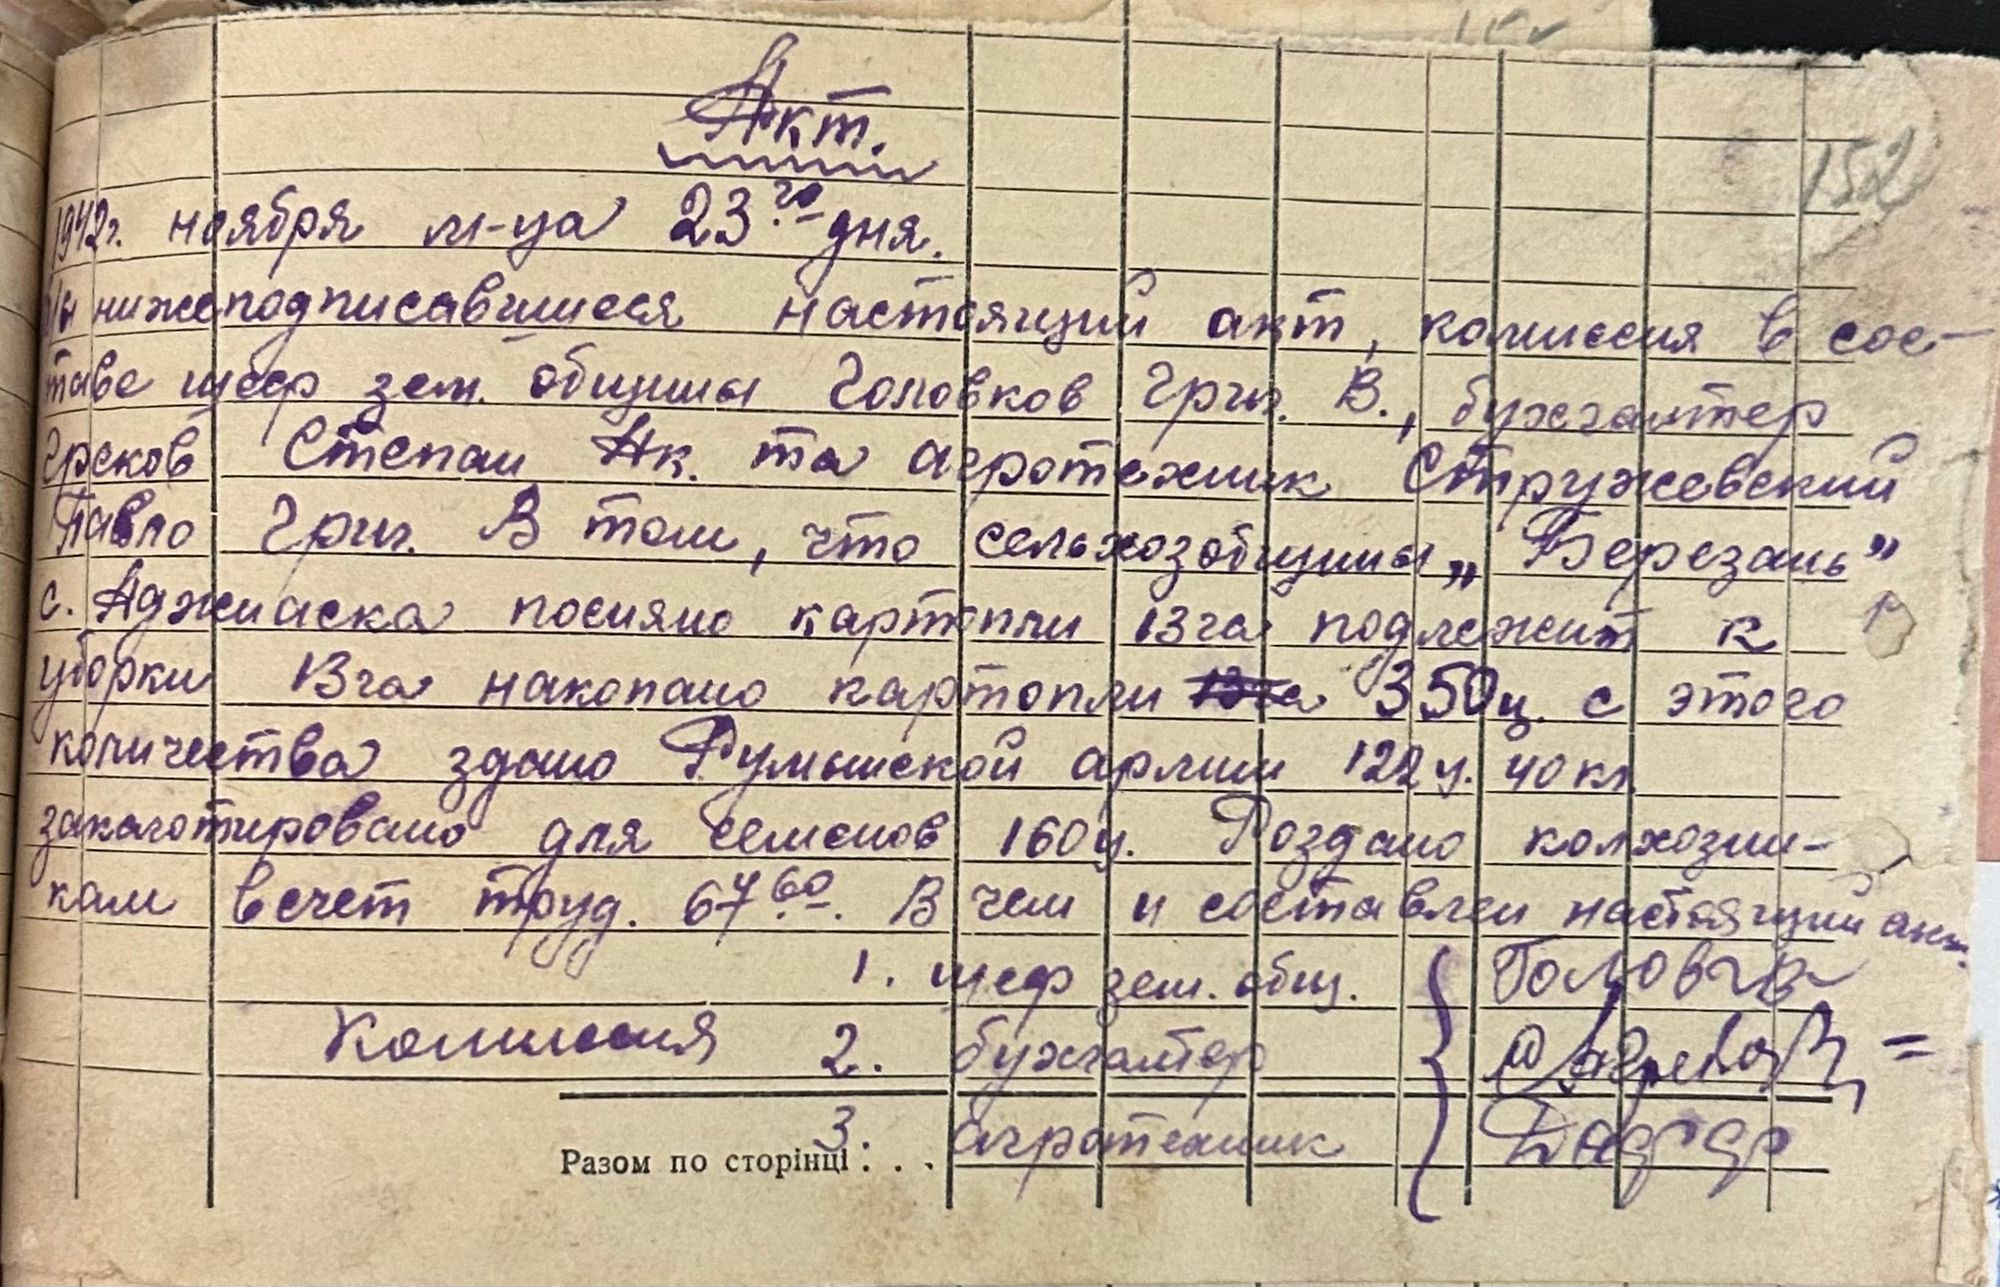 152
Акт.
1942г. ноября м-ца 23го дня.
Мы нижеподписавшиеся настоящий акт, комиссия в сос-
таве шеф зем. общины Головков Григ. В., бухгалтер
Греков Степан Ак. та агротехник Стружевский
Павло Григ. В том, что сельхозобщины „Березань"
с. Аджиаска посияно картопли 13га подлежит к
уборки 13га накопано картопли 350ц. с этого
количества здано Румынской армии 122ц. 40кл
закаготировано для семенов 160ц. Роздано колхозни-
кам в счет труд. 67 60. В чем и составлен настоящий акт.
1. шеф зем. общ.
Комиссия 2. бухгалтер
3. агротехник
Разом по сторінці: . . .